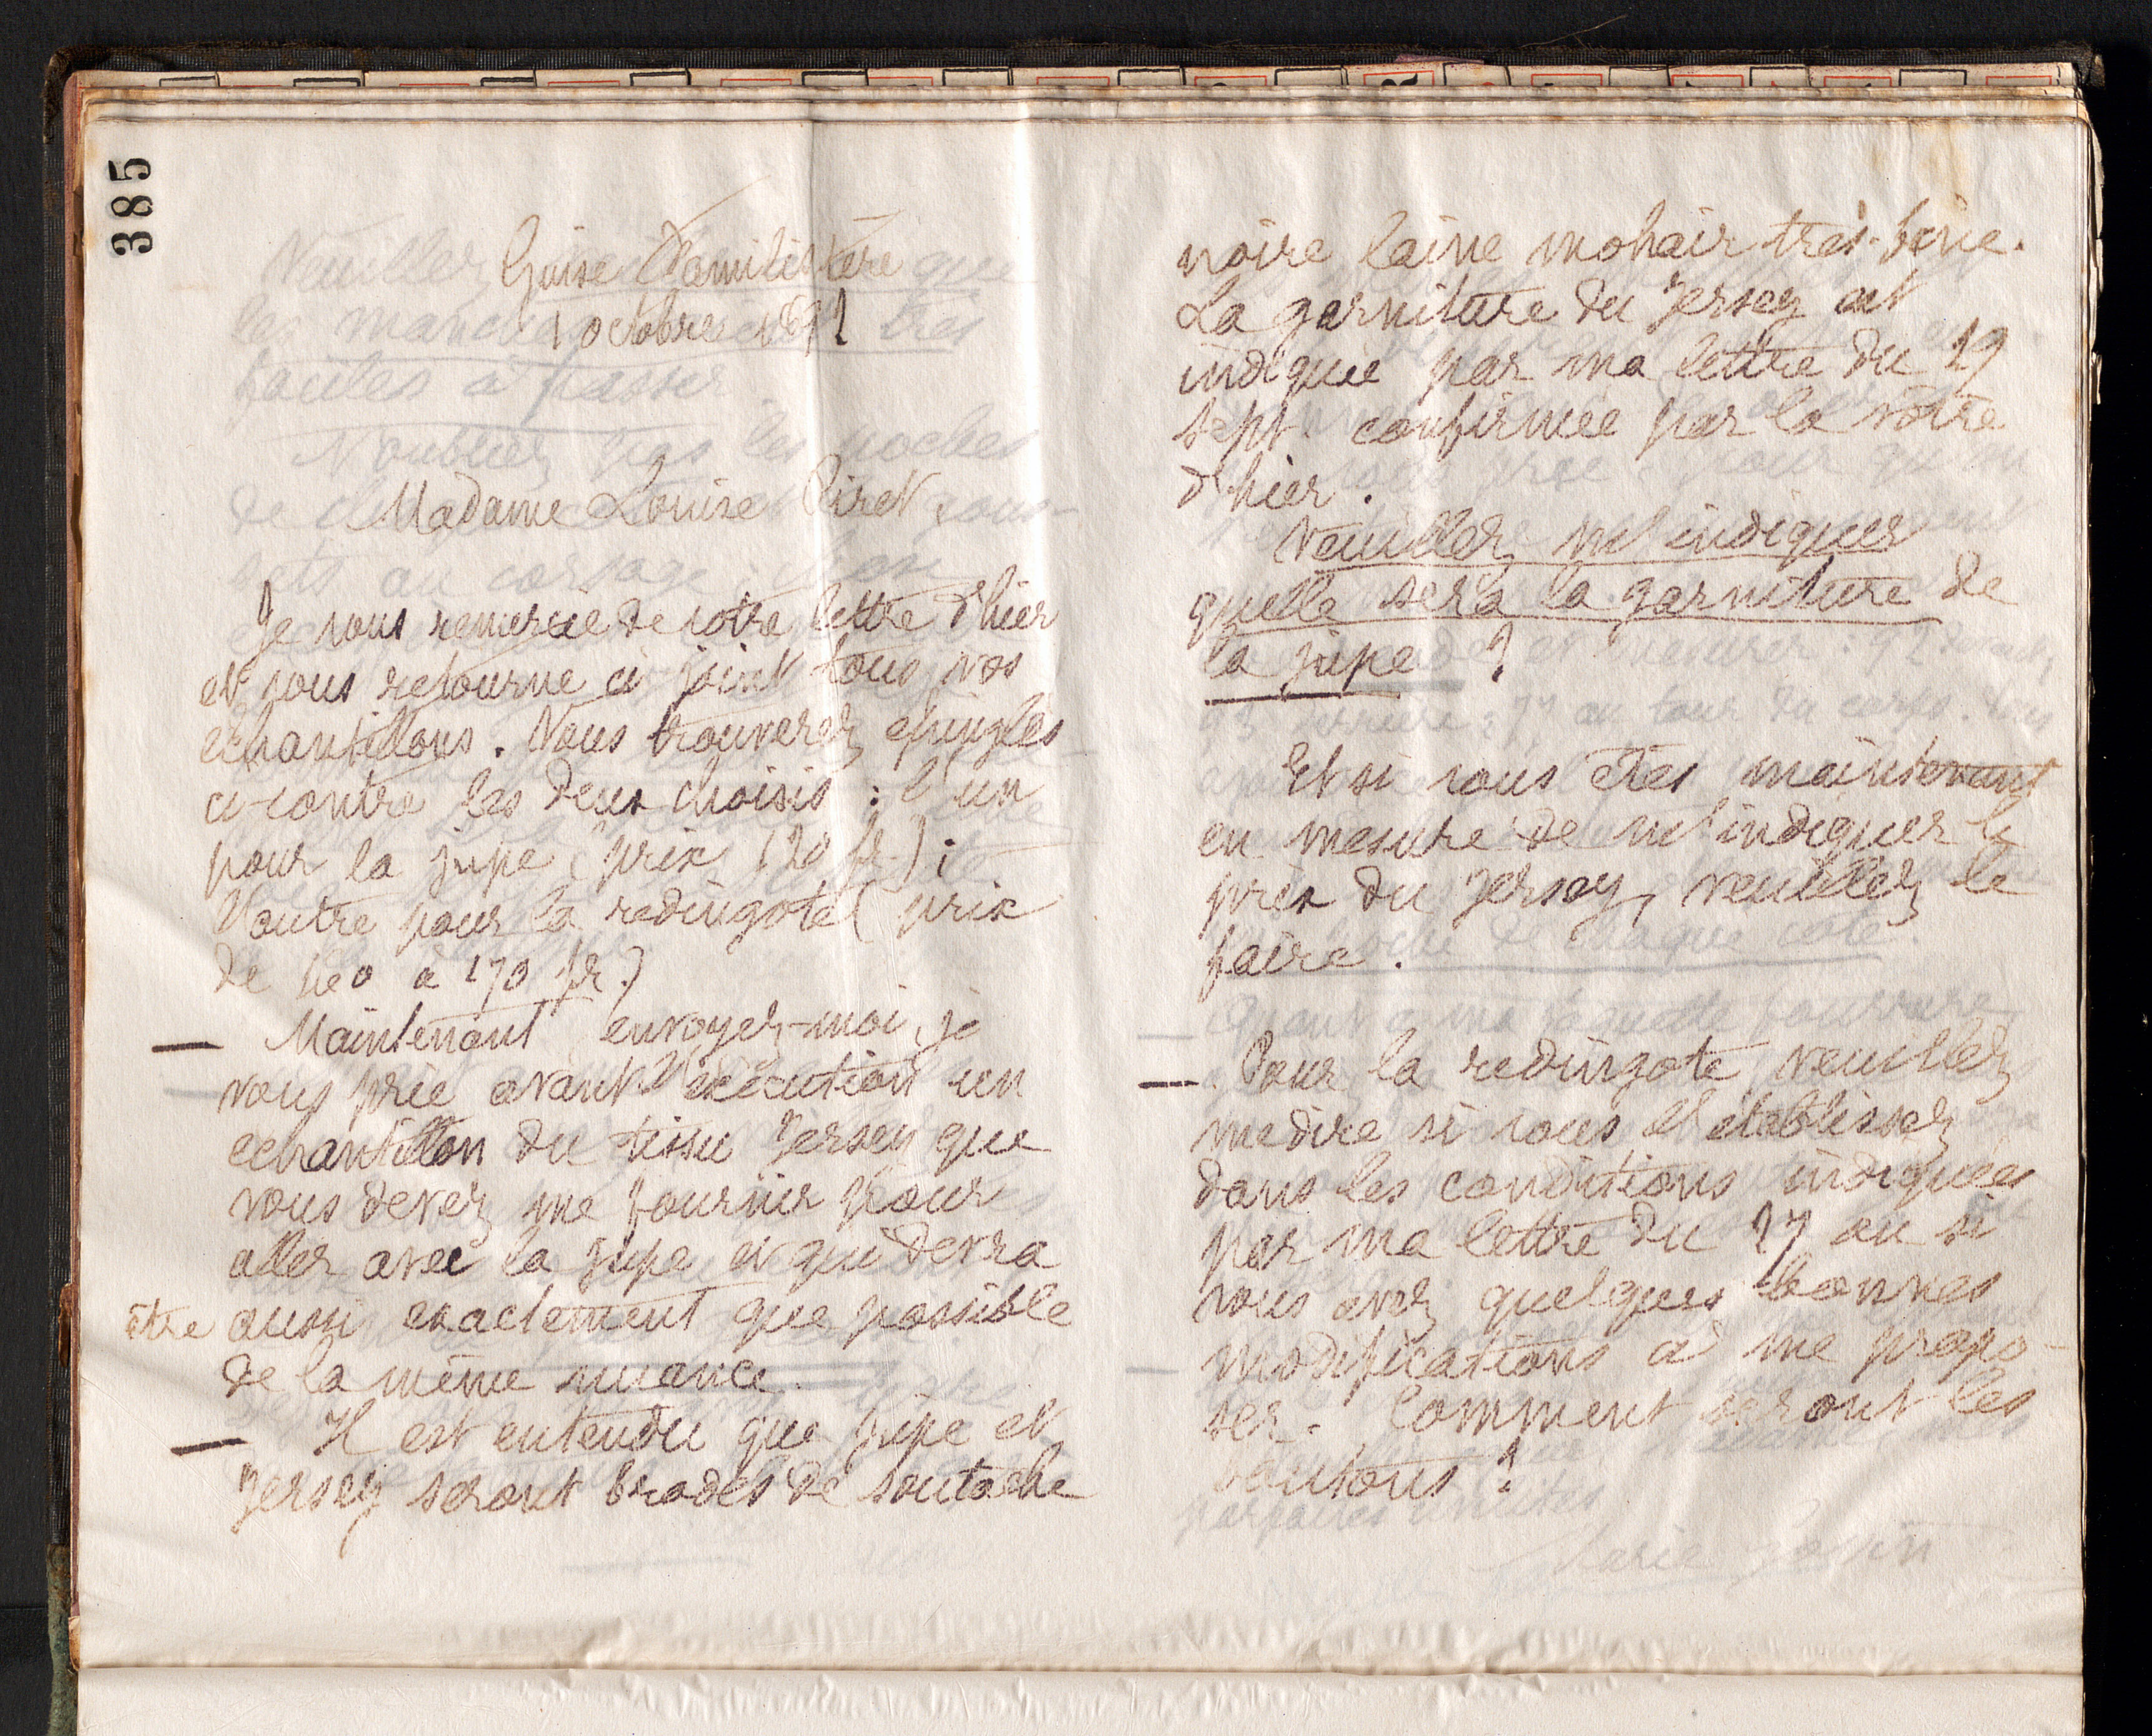 385
Guise Familistère
1 octobre 1891
Madame Louise Piret
Je vous remercie de votre lettre d'hier
et vous retourne ci joint tous vos
échantillons. Vous trouverez épinglés
ci-contre les deux choisis : l'un
pour la jupe (prix 120 fr.) ;
l'autre pour la redingote (prix
de à 170 fr.)
— Maintenant envoyez-moi, je
vous prie avant l'exécution un
échantillon du tissu Jersey que
vous devez me fournir pour
aller avec la jupe et qui devra
être aussi exactement que possible
de la même nuance.
— Il est entendu que jupe et
Jersey seront brodés de soutache
noire laine mohair très-fine.
La garniture du Jersey est
indiquée par ma lettre du 29
sept. confirmée par la vôtre
d'hier.
Veuillez m'indiquer
quelle sera la garniture de
la jupe ?
Et si vous êtes maintenant
en mesure de m'indiquer le
prix du Jersey, veuillez le
faire.
— Pour la redingote veuillez
me dire si vous l'établissez
dans les conditions indiquées
par ma lettre du 27 ou si
vous avez quelques bonnes
modifications à me propo-
ser. Comment seront les
boutons ?